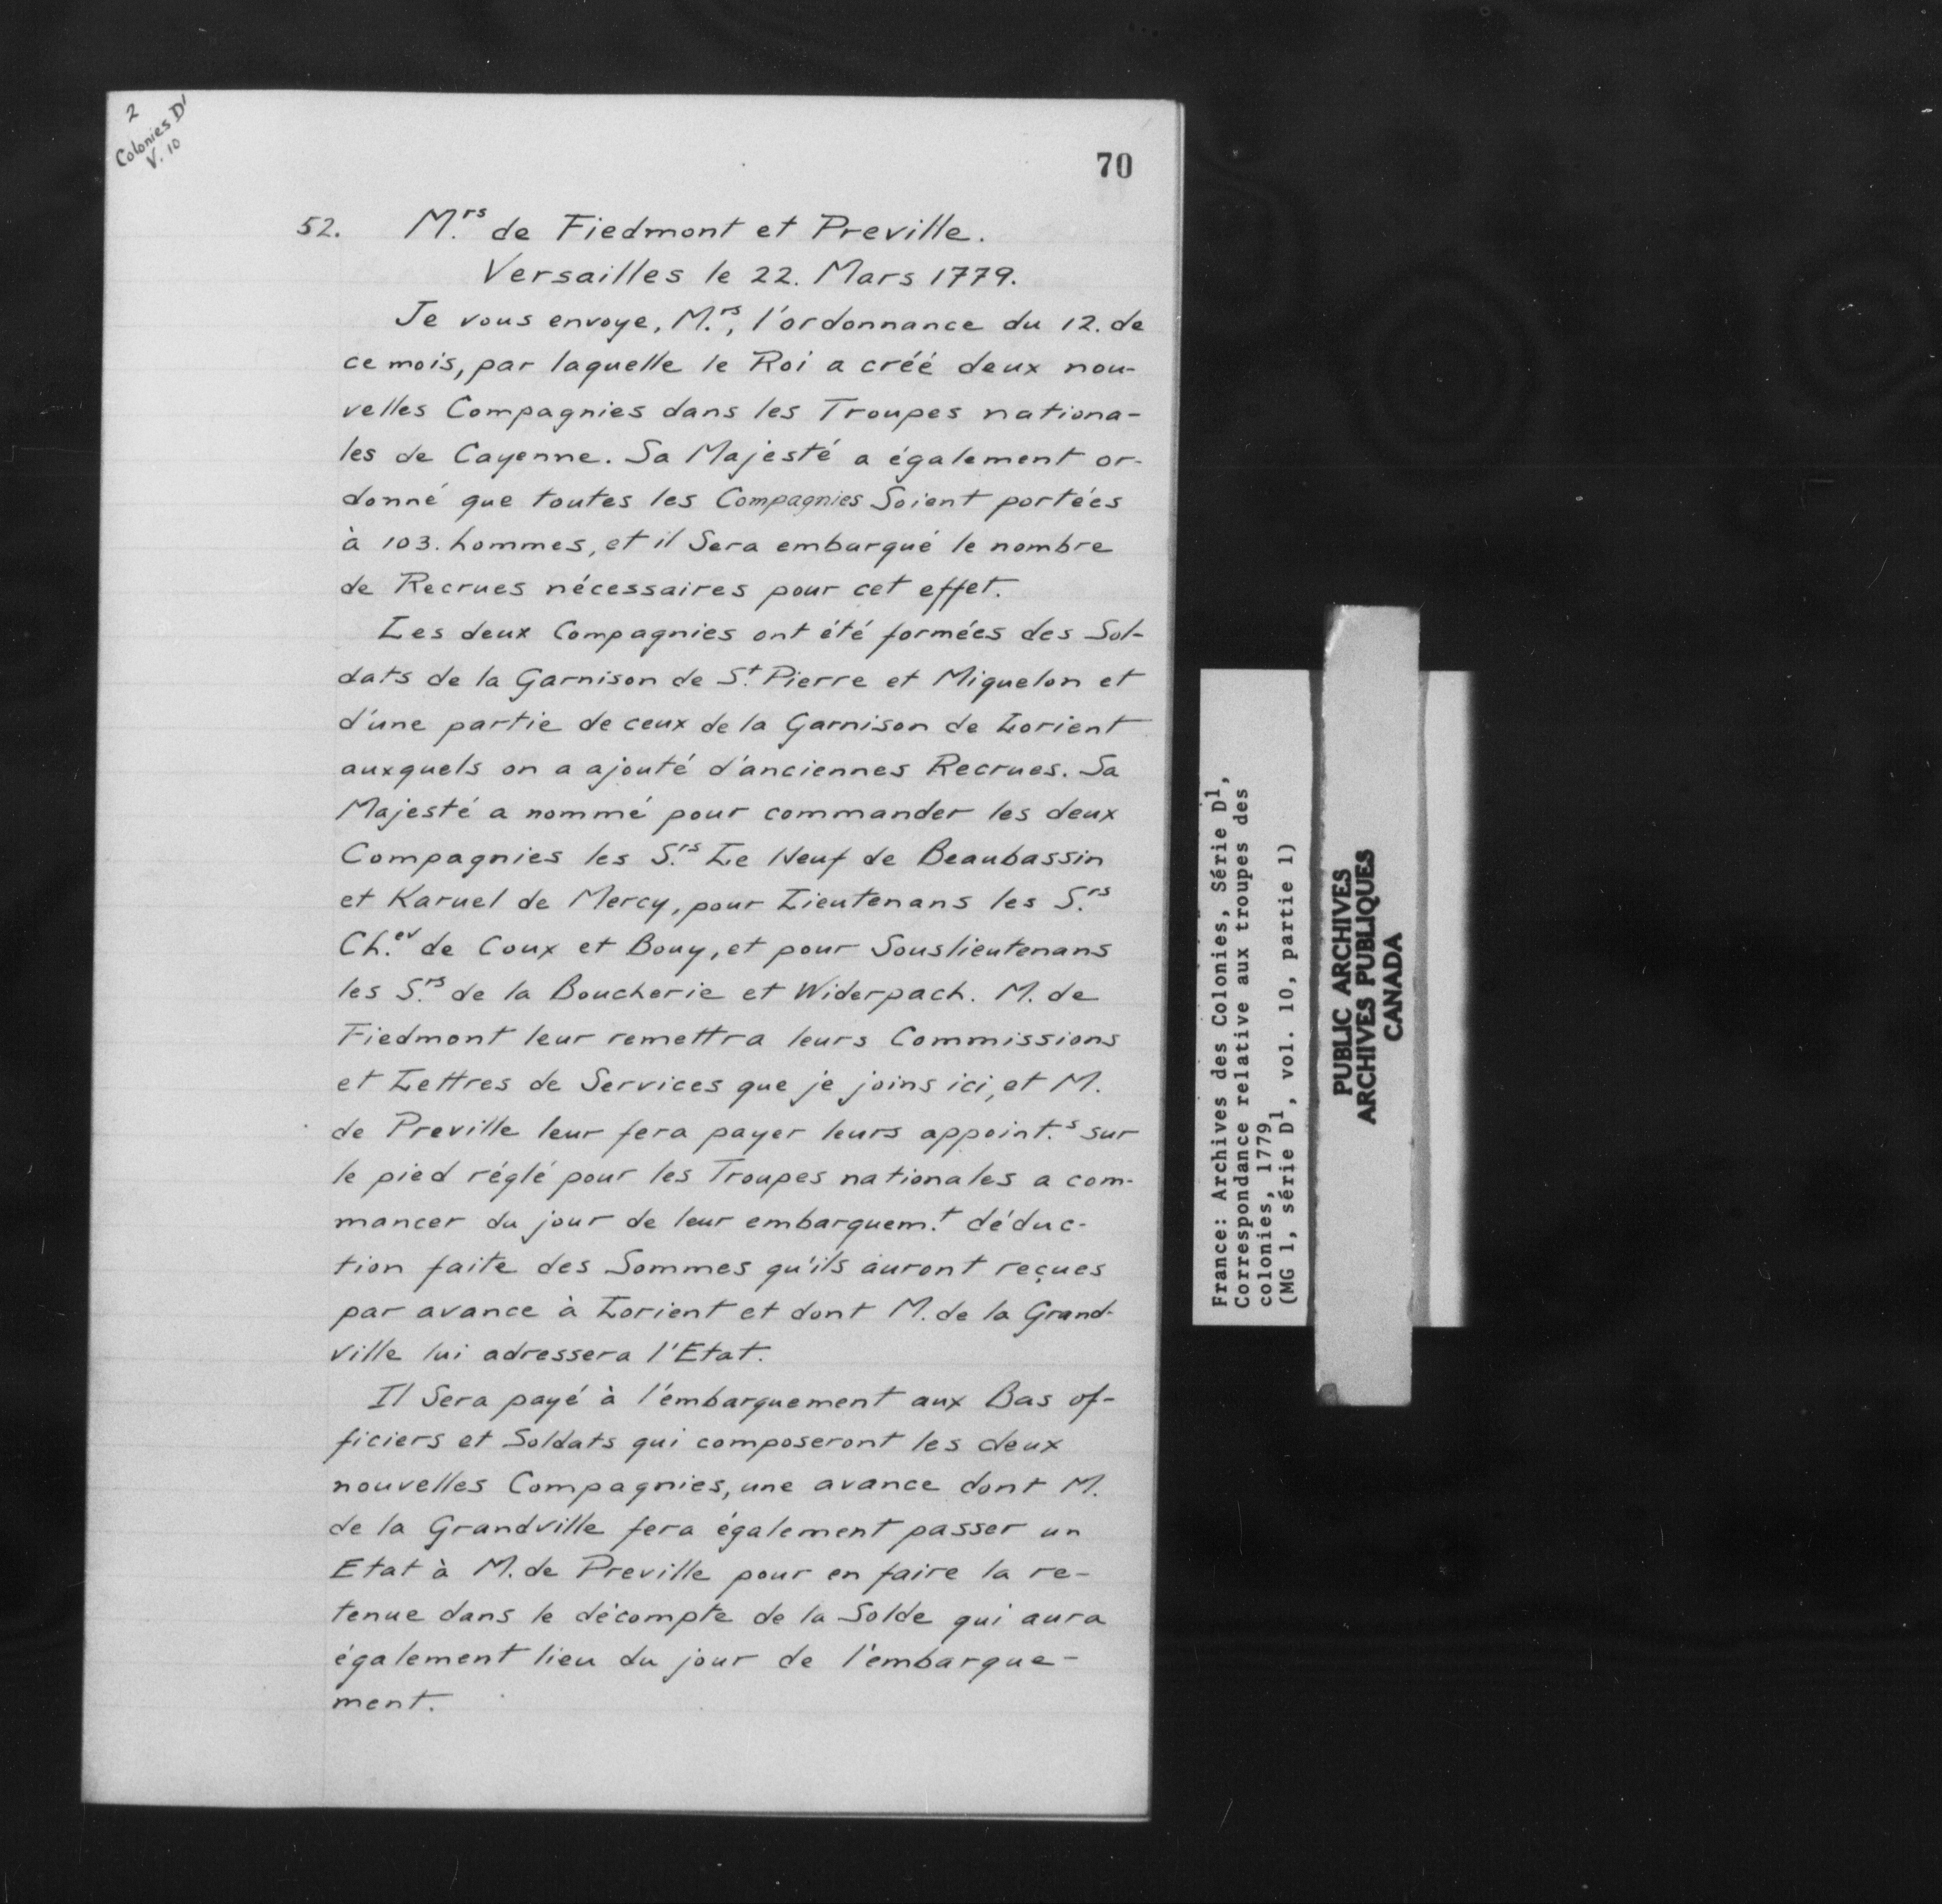 2
Colonies D1
V. 10
70
52. M.rs de Fiedmont et Preville.
Versailles le 22. Mars 1779.
Je vous envoye, M.rs, l'ordonnance du 12. de
ce mois, par laquelle le Roi a créé deux nou-
velles Compagnies dans les Troupes nationa-
les de Cayenne. Sa Majesté a également or-
donné que toutes les Compagnies Soient portées
à 103. hommes, et il Sera embarqué le nombre
de Recrues nécessaires pour cet effet.
Les deux Compagnies ont été formées des Sol-
dats de la Garnison de St. Pierre et Miquelon et
d'une partie de ceux de la Garnison de Lorient
auxquels on a ajouté d'anciennes Recrues. Sa
Majesté a nommé pour commander les deux
Compagnies les S.rs Le Neuf de Beaubassin
et Karuel de Mercy, pour Lieutenans les S.rs
Ch.ev de Coux et Bouy, et pour Souslieutenans
les S.rs de la Boucherie et Widerpach. M. de
Fiedmont leur remettra leurs Commissions
et Lettres de Services que je joins ici, et M.
de Preville leur fera payer leurs appoint.s sur
le pied réglé pour les Troupes nationales a com-
mancer du jour de leur embarquem.t déduc-
tion faite des Sommes qu'ils auront reçues
par avance à Lorient et dont M. de la Grand-
ville lui adressera l'Etat.
Il Sera payé à l'embarquement aux Bas of-
ficiers et Soldats qui composeront les deux
nouvelles Compagnies, une avance dont M.
de la Grandville fera également passer un
Etat à M. de Preville pour en faire la re-
tenue dans le décompte de la Solde qui aura
également lieu du jour de l'embarque-
ment.
France: Archives des Colonies, Série D1,
Correspondance relative aux troupes des
colonies, 1779
(MG 1, série D1, vol. 10, partie 1)
PUBLIC ARCHIVES
ARCHIVES PUBLIQUES
CANADA